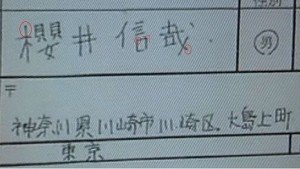 櫻井 信哉
男
〒
神奈川県川崎市川崎区大島上町
東京